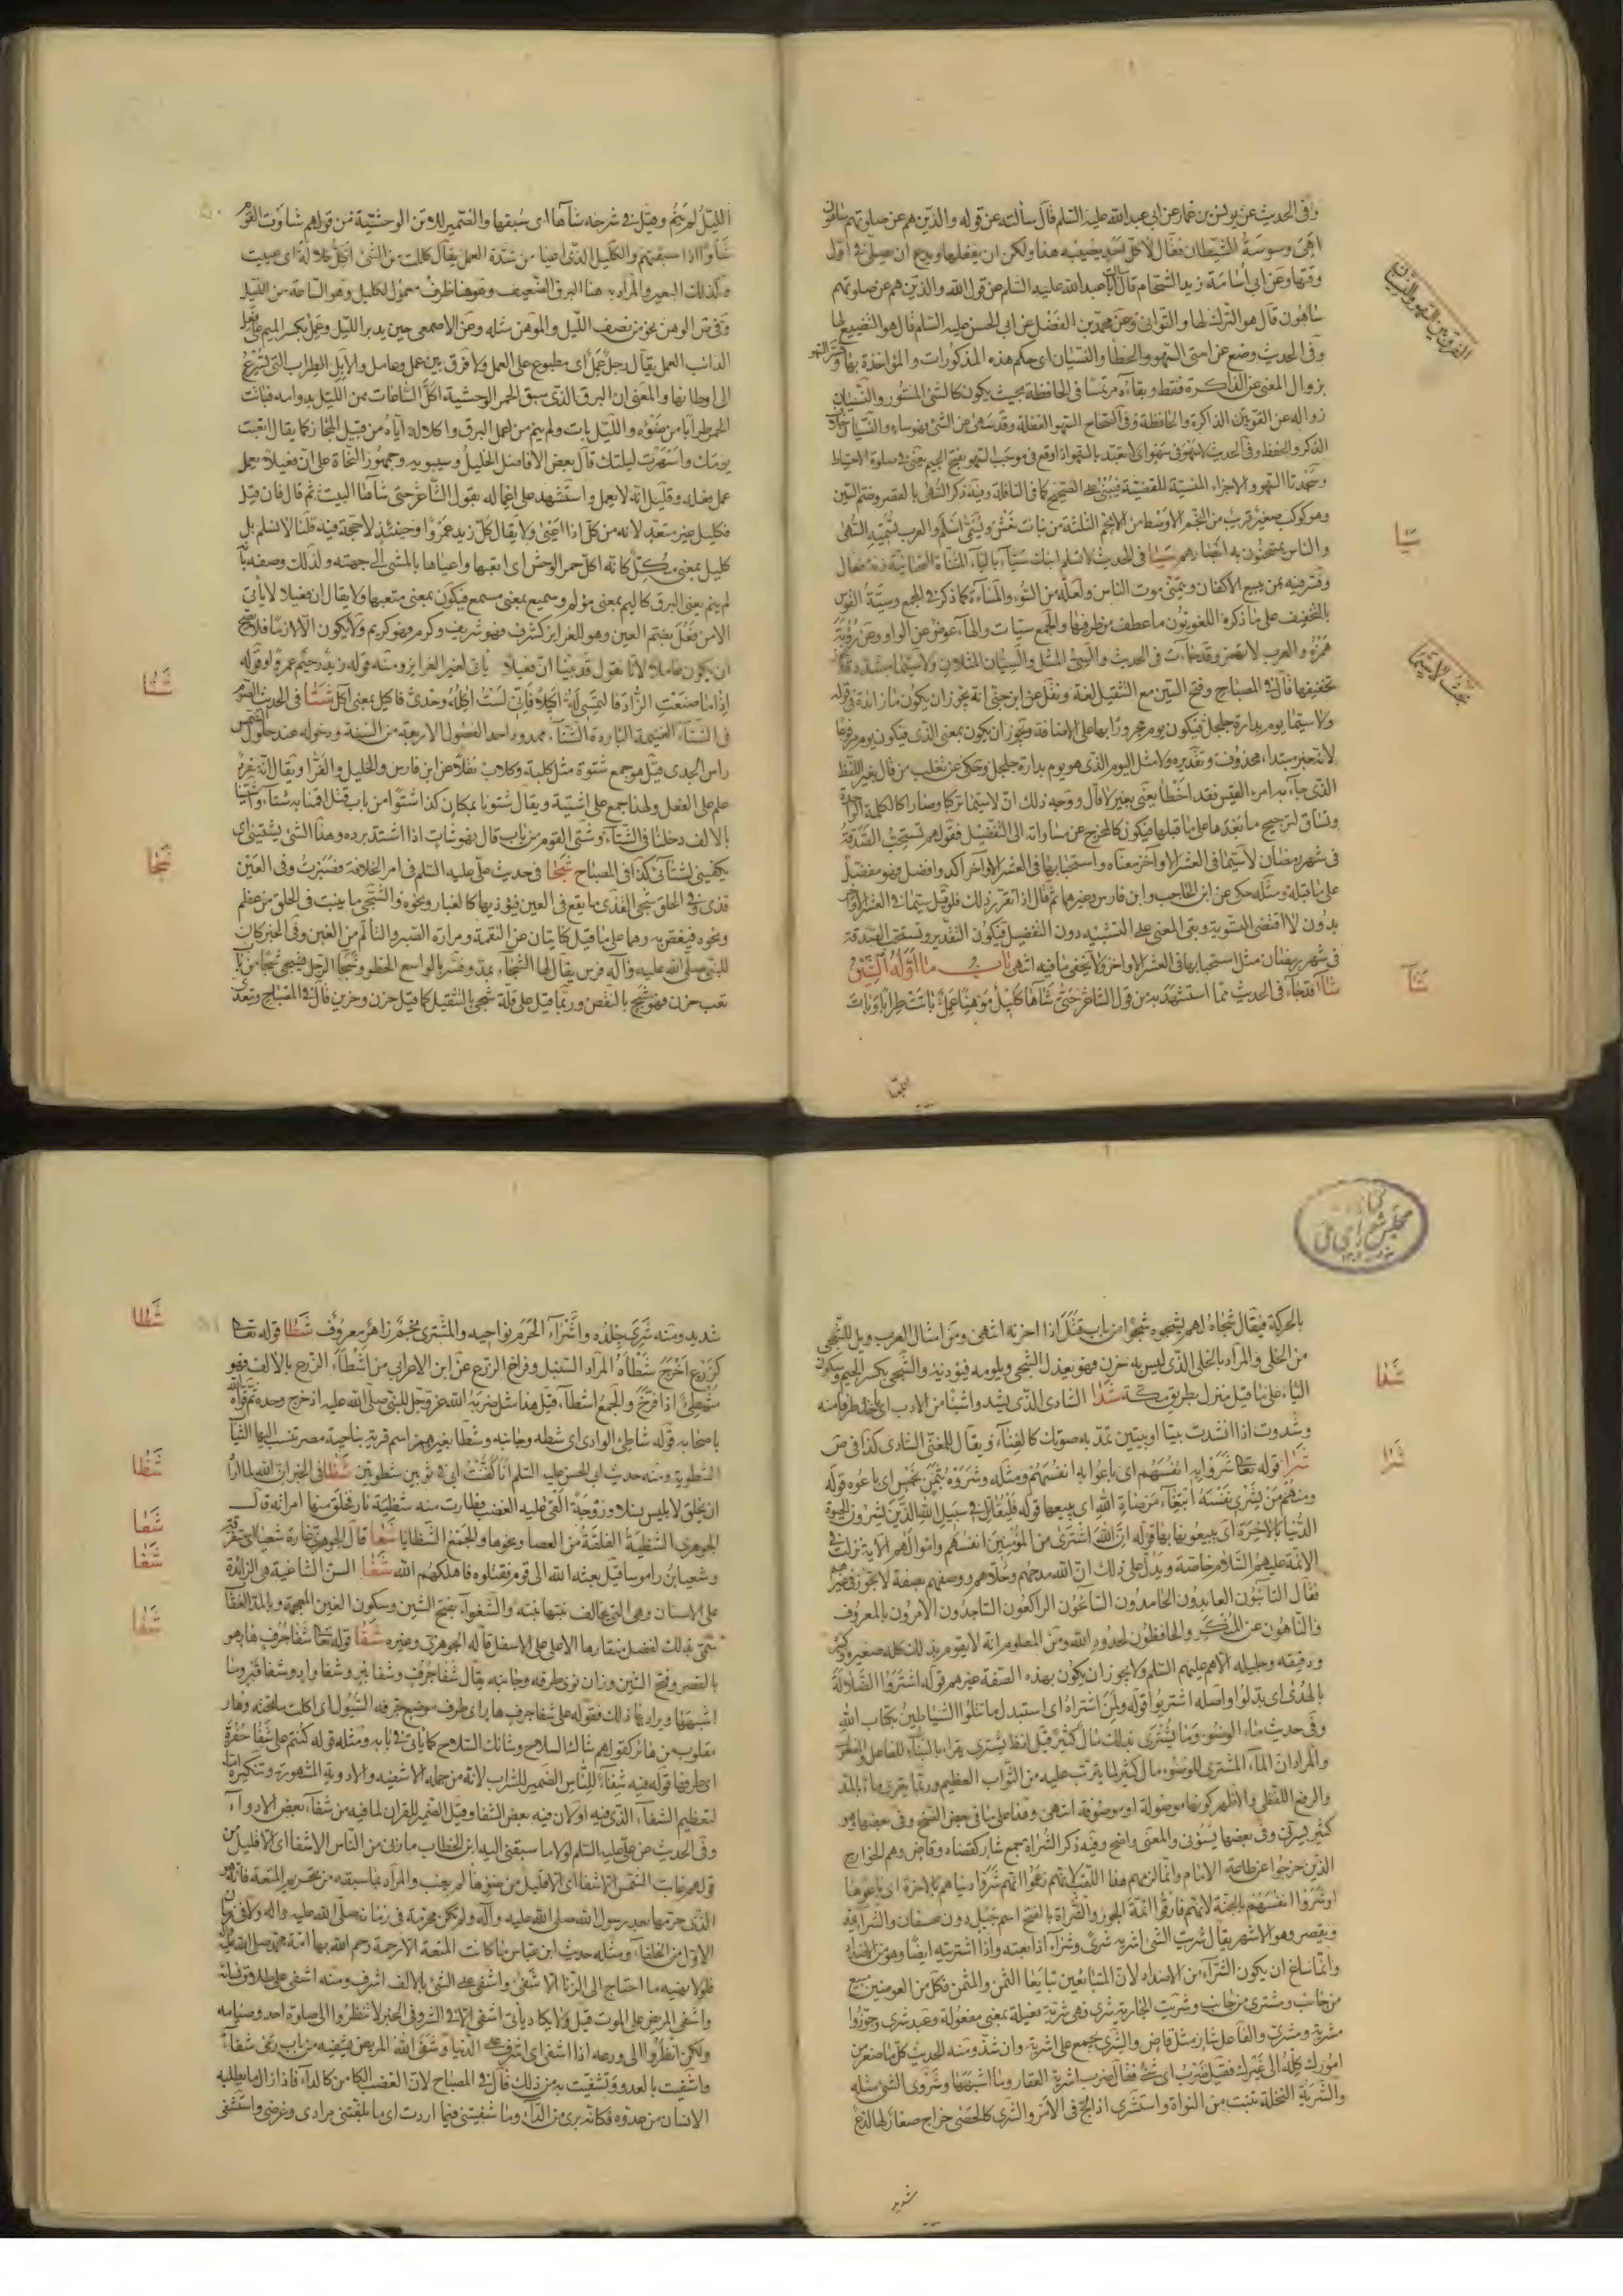 وفى الحديث عن يونس بن عمار عن ابى عبدالله عليه السلم قال سألته عن قوله والذين هم عن صلوتهم ساهون
اهى وسوسة الشيطان فقال لا كل احد يصيبه هذا ولكن ان يغفلها ويدع ان يصلى فى اول
وقتها وعن ابى اسامة زيد الشحام قال سالت ابا عبدالله عليه السلم عن قول الله والذين هم عن صلوتهم
ساهون قال هو الترك لها والتوانى وعن محمد بن الفضل عن ابى الحسن عليه السلم قال هو التضييع لها
وفى الحديث وضع عن امتى السهو والخطأ والنسيان اى حكم هذه المذكورات والمؤاخذة بها
بزوال المعنى عن الذاكرة فقط وبقاءه مرتسما فى الحافظة بحيث يكون كالشئ المستور والنسيان
زواله عن القوتين الذاكرة والحافظة وفى الصحاح السهو الغفلة وقد سهى عن الشئ فهو ساه والنسيان خلاف
الذكر والحفظ وفى الحديث لا سهو فى سهو اى لا يعتد بالسهو اذا وقع فى موجب السهو بفتح الجيم يعنى فى صلوة الاحتياط
وسجدتا السهو والاجزاء المنسية المقضية فيبنى على الصحيح كما فى النافلة وفيه ذكر السهى بالقصر وضم السين
وهو كوكب صغير قريب من النجم الاوسط من الانجم الثلثة من بنات نعش ويسمى اسلم والعرب تسميه السهى
والناس يمتحنون به ابصارهم سيا فى الحديث لا تسلم ابنك سياء بالياء المثناة التحتانية
وفسر فيه بمن يبيع الاكفان ويتمنى موت الناس ولعله من السوء والمساءة كما ذكر فى الجمع وسية القوس
بالتخفيف على ما ذكره اللغويون ما عطف من طرفيها والجمع سيات والهاء عوض عن الواو وعن رؤبة
همزه والعرب لا تهمز وقد جاءت فى الحديث والسى المثل والسيان المثلان ولا سيما مشدد
تخفيفها قال فى المصباح وفتح السين مع التثقيل لغة ونقل عن ابن جنى انه يجوز ان يكون ما زائدة فى قوله
ولا سيما يوم بدارة جلجل فيكون يوم مجرورا بها على الاضافة ويجوز ان يكون بمعنى الذى فيكون يوم مرفوعا
لانه خبر مبتداء محذوف وتقديره ولا مثل اليوم الذى هو يوم بدارة جلجل وحكى عن ثعلب من قال بغير اللفظ
الذى جاء به امرء القيس فقد اخطأ يعنى بغير لا قال ووجه ذلك ان لا سيما تركبا وصارا كالكلمة الواحدة
وتساق لترجيح ما بعدها على ما قبلها فيكون كالمخرج عن مساواته الى التفضيل فقولهم تستحب الصدقة
فى شهر رمضان لا سيما فى العشر الاواخر معناه واستحبابها فى العشر الاواخر اكد وافضل فهو مفضل
على ما قبله ومثله حكى عن ابن الحاجب وابن فارس وغيرهما ثم قال اذا تقرر ذلك فلو قيل سيما فى العشر الاواخر
بدون لا اقتضى التسوية وبقى المعنى على التشبيه دون التفضيل فيكون التقدير وتستحب الصدقة
فى شهر رمضان مثل استحبابها فى العشر الاواخر ولا يخفى ما فيه انتهى باب ما اوله الشين
شاا فقد جاء فى الحديث مما استشهد به من قول الشاعر حتى شاها كليل موهنا عمل باتت طرابا وبات
الليل
الفرق بين السهو والنسيان
سيا
بحث لاسيما
شاا
الليل لم ينم وقيل فى شرحه شآها اى سبقها والضمير للاتن الوحشية من قولهم شاوت القوم
شأوا اذا سبقتهم والكليل الذى اعيا من شدة العمل يقال كللت من الشئ اكل كلالة اى عييت
وكذلك البعير والمراد به هنا البرق الضعيف وموهنا ظرف معمول لكليل وهو الساعة من الليل
وفى ص الوهن نحو من نصف الليل والموهن مثله وعن الاصمعى حين يدبر الليل وعمل بكسر الميم
الدائب العمل يقال رجل عمل اى مطبوع على العمل ولا فرق بين عمل وعامل والابل الطراب التى تسرع
الى اوطانها والمعنى ان البرق الذى سبق الحمر الوحشية اكل الساعات من الليل بدوامه فباتت
الحمر طرابا من ضوئه والليل بات ولم ينم من عمل البرق واكلاله اياه من قبيل المجاز كما يقال اتعبت
يومك واسهرت ليلتك قال بعض الافاضل الخليل وسيبويه وجمهور النحاة على ان فعيلا يعمل
عمل فعله وقليل انه لا يعمل واستشهد على اعماله بقول الشاعر حتى شآها البيت ثم قال فان قيل
فكليل غير متعد لانه من كل اذا اعيى ولا يقال كل زيد عمروا وحينئذ لا حجة فيه قلنا لا نسلم بل
كليل بمعنى مكل كانه اكل حمر الوحش اى اتعبها واعياها بالمشى الى جهته ولذلك وصفه بانه
لم ينم يعنى البرق كاليم بمعنى مؤلم وسميع بمعنى مسمع فيكون بمعنى متعبها ولا يقال ان فعيلا لا يأتى
الا من فعل بضم العين وهو للغرايز كشرف فهو شريف وكرم فهو كريم ولا يكون الا لازما فلا يصح
ان يكون عاملا لانا نقول قد بينا ان فعيلا ياتى لغير الغرايز ومنه قوله زيد رحيم عمرو وقوله
اذا ما صنعت الزاد فالتمسى له اكيلا فانى لست اكله وحدى فاكيل بمعنى آكل شتا فى الحديث الصوم
فى الشتاء الغنيمة الباردة الشتاء ممدود احد الفصول الاربعة من السنة ودخوله عند حلول الشمس
راس الجدى قيل هو جمع شتوة مثل كلبة وكلاب نقلا عن ابن فارس والخليل والفراء ويقال انه مفرد
علم على الفصل ولهذا جمع على اشتية ويقال شتونا بمكان كذا شتوا من باب قتل اقمنا به شتاء واشتينا
بالالف دخلنا فى الشتاء وشتى القوم من باب قال فهو شات اذا اشتد برده وهذا الشئ يشتينى اى
يكفينى لشتائى كذا فى المصباح شجا فى حديث على عليه السلم فى امر الخلافة فصبرت وفى العين
قذى وفى الحلق شجى القذى ما يقع فى العين فيؤذيها كالغبار ونحوه والشجى ما ينبت فى الحلق من عظم
ونحوه فيغص به وهما على ما قيل كنايتان عن النقمة ومرارة الصبر والتألم من الغبن وفى الخبر كان
للنبى صلى الله عليه وآله فرس يقال لها الشجاء بمد وفسر بالواسع الخطو وشجا الرجل يشجى شجا من باب
تعب حزن فهو شج بالنقص وربما قيل على قلة شجى بالتثقيل كما قيل حزن وحزين قال فى المصباح ويتعدى
شتا
شجا
بالحركة فيقال شجاه لهم يشجوه شجوا من باب قتل اذا احزنه انتهى ومن امثال العرب ويل للشجى
من الخلى والمراد بالخلى الذى ليس به حزن فهو يعذل الشجى ويلومه فيؤذيه والشجى بكسر الجيم وسكون
الياء على ما قيل منزل بطريق مكة شدا الشادى الذى يشد واشيئا من الادب اى ياخذ طرفا منه
وشدوت اذا انشدت بيتا او بيتين تمد به صوتك كالغناء ويقال للمغنى الشادى كذا فى ص
شرا قوله تعا شروا به انفسهم اى باعوا به انفسهم ومثله وشروه بثمن بخس اى باعوه قوله
ومنهم من يشرى نفسه ابتغاء مرضاة الله اى يبيعها قوله فليقاتل فى سبيل الله الذين يشرون الحيوة
الدنيا بالاخرة اى يبيعونها بها قوله ان الله اشترى من المؤمنين انفسهم واموالهم الاية نزلت فى
الائمة عليهم السلام خاصة ويدل على ذلك ان الله مدحهم وحلاهم ووصفهم بصفة لا يجوز فى غيرهم
فقال التائبون العابدون الحامدون السائحون الراكعون الساجدون الامرون بالمعروف
والناهون عن المنكر والحافظون لحدود الله ومن المعلوم انه لا يقوم بذلك كله صغيره وكبيره
ودقيقه وجليله الا هم عليهم السلم ولا يجوز ان يكون بهذه الصفة غيرهم قوله اشتروا الضلالة
بالهدى اى بدلوا واصله اشتريوا قوله ولمن اشتراه اى استبدل ما تتلوا الشياطين بكتاب الله
وفى حديث ماء الوضوء وما يشترى بذلك مال كثير قيل لفظ يشترى يقرا بالبناء للفاعل والمفعول
والمراد ان الماء المشترى للوضوء مال كثير لما يترتب عليه من الثواب العظيم وربما يقرء ماء بالمد
والرفع اللفظى والاظهر كونها موصولة او موصوفة انتهى وهذا على ما فى بعض النسخ وفى بعضها
كثير يسرنى وفى بعضها يسوئنى والمعنى واضح وفيه ذكر الشراة جمع شار كقضاة وقاض وهم الخوارج
الذين خرجوا عن طاعة الامام وانما لزمهم هذا اللقب لانهم زعموا انهم شروا دنياهم بالاخرة اى باعوها
او شروا انفسهم بالجنة لانهم فارقوا ائمة الجور والشراة بالفتح اسم جبل دون عسفان والشراء يمد
ويقصر وهو الاشهر يقال شريت الشئ اشريه شرى وشراء اذا بعته واذا اشتريته ايضا وهو من الاضداد
وانما ساغ ان يكون الشراء من الاضداد لان المتبايعين تبايعا الثمن والمثمن فكل من العوضين مبيع
من جانب ومشترى من جانب وشريت الجارية شرى فهى شرية فعيلة بمعنى مفعولة وعبد شرى وجوزوا
مشرية ومشرى والفاعل شار مثل قاض والشرى يجمع على اشرية وان شذ ومنه الحديث كل ما صغر من
امورك كله الى غيرك فقيل ضرب اى شئ فقال ضرب اشرية العقار وما اشبهها وشروى الشئ مثله
والشرية النخلة تنبت من النواة واستشرى اذا لج فى الامر والشرى كالحصى خراج صغار لها لذع
شديد
شدا
شرا
شديد ومنه شرى جلده واشراء الحرم نواحيه والمشترى نجم زاهر معروف شطا قوله تعا
كزرع اخرج شطأه المراد السنبل وفراخ الزرع عن ابن الاعرابى من اشطأ الزرع بالالف فهو
مشطئ اذا فرخ والجمع اشطاء قيل هذا مثل ضربه الله عز وجل للنبى صلى الله عليه اذ خرج وحده ثم قواه الله
باصحابه قوله شاطئ الوادى اى شطه وجانبه وشطا بغير همز اسم قرية بناحية مصر تنسب اليها الثياب
الشطوية ومنه حديث ابى الحسن عليه السلم انا كفنت ابى فى ثوبين شطويين شظا فى الخبر ان الله لما اراد
ان يخلق لابليس نسلا وزوجة القى عليه الغضب فطارت منه شظية نار فخلق منها امراته قال
الجوهرى الشظية الفلقة من العصا ونحوها والجمع الشظايا شعا قال الجوهرى غارة شعواء
وشعيا بن راموسا قيل بعثه الله الى قومه فقتلوه فاهلكهم الله شغا السن الشاغية هى الزائدة
على الاسنان وهى التى تخالف نبتها نبته والشغواء بفتح الشين وسكون الغين المعجمة وبالمد العقاب
سمى بذلك لفضل منقارها الاعلى على الاسفل قاله الجوهرى وغيره شفا قوله تعا شفا جرف هار هو
بالقصر وفتح الشين وزان نوى طرفه وجانبه يقال شفا جرف وشفا بئر وشفا واد وشفا قبر وما
اشبهها ويراد بها ذلك فقوله على شفا جرف هار اى طرف موضع تجرفه السيول اى اكلت ما تحته وهار
مقلوب من هائر كقولهم شاك السلاح وشائك السلاح كما ياتى فى بابه ومثله قوله كنتم على شفا حفرة
اى طرفها قوله فيه شفاء للناس الضمير للشراب لانه من جملة الاشفية والادوية المشهورة وتنكيره
لتعظيم الشفاء الذى فيه او لان فيه بعض الشفا وقيل الضمير للقران لما فيه من شفاء بعض الادواء
وفى الحديث عن على عليه السلم لولا ما سبقنى اليه ابن الخطاب ما زنى من الناس الا شفا اى الا قليل من
قولهم غابت الشمس الا شفا اى الا قليل من ضوئها لم يغب والمراد بما سبقه من تحريم المتعة فانه هو
الذى حرمها بعد رسول الله صلى الله عليه وآله ولم تكن محرمة فى زمانه صلى الله عليه واله ولا فى زمان
الاول من الخلفاء ومثله حديث ابن عباس ما كانت المتعة الا رحمة رحم الله بها امة محمد صلى الله عليه
فلولا نهيه ما احتاج الى الزنا الا شفى واشفى على الشئ بالالف اشرف ومنه اشفى على طلاق نسائه
واشفى المريض على الموت قيل ولا يكاد يأتى اشفى الا فى الشر وفى الخبر لا تنظروا الى صلوة احد وصيامه
ولكن انظروا الى ورعه اذا اشفى اى اشرف على الدنيا وشفى الله المريض يشفيه من باب رمى شفاء
واشفيت بالعدو وتشفيت به من ذلك قال فى المصباح لان الغضب الكامن كالداء فاذا زال ما يطلبه
الانسان من عدوه فكانه برئ من الداء وما شفيتنى فيما اردت اى ما بلغتنى مرادى وغرضى واستشفى
شطا
شظا
شعا
شغا
شفا
مجلس شوراى ملى